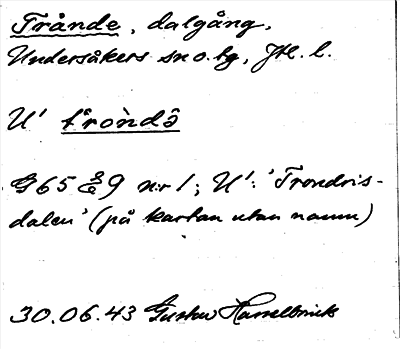 Trånde, dalgång,
Undersåkers sn o. tg, Jtl. l.
U' tròndå̂
G65 & 9 nr 1; U': 'Trondris-
dalen' (på kartan utan namn)
30.06.43 Gustav Hasselbrink